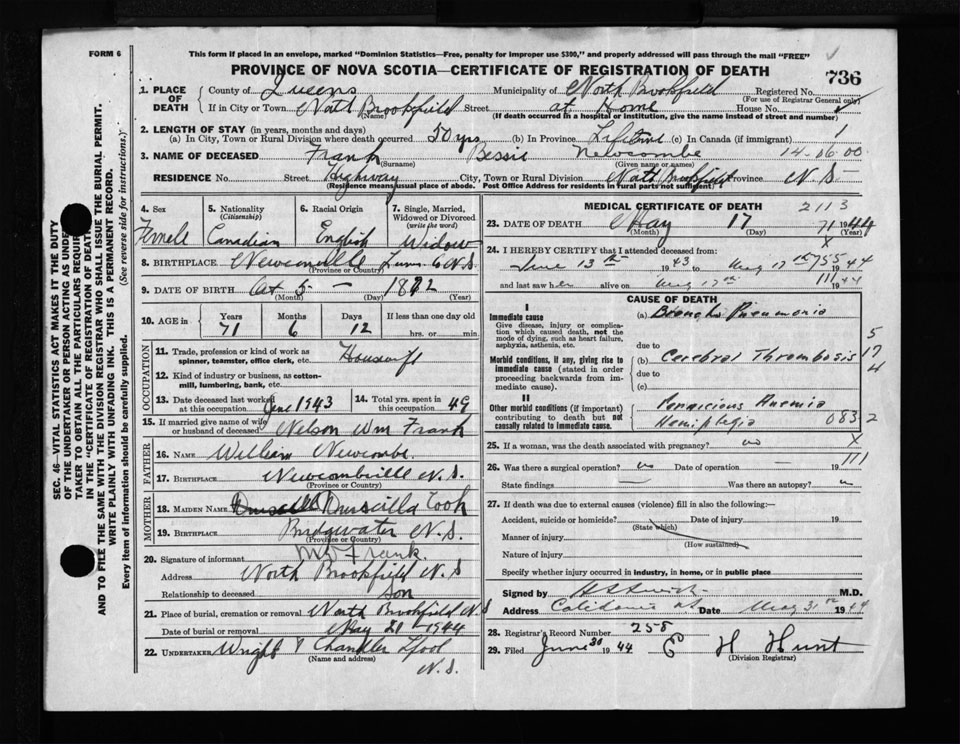 FORM 6
This form if placed in an envelope, marked "Dominion Statistics—Free, penalty for improper use $300," and properly addressed will pass through the mail "FREE"
PROVINCE OF NOVA SCOTIA—CERTIFICATE OF REGISTRATION OF DEATH 736
1. PLACE OF DEATH County of Queens Municipality of North Brookfield Registered No.
(For use of Registrar General only)
If in City or Town North Brookfield Street at Home House No.
(Name) (If death occurred in a hospital or Institution, give the name instead of street and number)
2. LENGTH OF STAY (in years, months and days) 1
(a) In City, Town or Rural Division where death occurred 50 yrs (b) In Province Lifetime (c) In Canada (if immigrant)
3. NAME OF DECEASED Frank Bessie Newcombe 14-06-00
(Surname) (Given name or names)
RESIDENCE No. Street Highway City, Town or Rural Division North Brookfield Province N.S
(Residence means usual place of abode. Post Office Address for residents in rural parts not sufficient)
4. Sex 5. Nationality (Citizenship) 6. Racial Origin 7. Single, Married, Widowed or Divorced (write the word)
Female Canadian English Widow
8. BIRTHPLACE Newcombville Lun. Co N.S.
(Province or Country)
9. DATE OF BIRTH Oct 5 — 1872
(Month) (Day) (Year)
10. AGE in Years Months Days If less than one day old
71 6 12 hrs. or min.
OCCUPATION
11. Trade, profession or kind of work as spinner, teamster, office clerk, etc. Housewife
12. Kind of industry or business, as cotton-mill, lumbering, bank, etc.
13. Date deceased last worked at this occupation June 1943 14. Total yrs. spent in this occupation 49
15. If married give name of wife or husband of deceased Nelson Wm Frank
FATHER
16. Name William Newcombe.
17. Birthplace Newcombville N.S.
(Province or Country)
MOTHER
18. Maiden Name Druscilla Cook
19. Birthplace Bridgwater N.S.
(Province or Country)
20. Signature of informant Frank.
Address North Brookfield N.S
Relationship to deceased Son
21. Place of burial, cremation or removal North Brookfield N.S
Date of burial or removal May 21 1944
22. UNDERTAKER Wright & Chandler Lpool
(Name and address) N.S.
MEDICAL CERTIFICATE OF DEATH 2113
23. DATE OF DEATH May 17 71 1944
(Month) (Day) (Year)
24. I HEREBY CERTIFY that I attended deceased from: X
June 13th 1943 to May 17th 755 44
and last saw her alive on May 17th 111 1944
CAUSE OF DEATH
I
Immediate cause (a) Broncho Pneumonia
Give disease, injury or complication which caused death, not the mode of dying, such as heart failure, asphyxia, asthenia, etc.
due to 5
Morbid conditions, if any, giving rise to immediate cause (stated in order proceeding backwards from immediate cause).
(b) Cerebral Thrombosis 17
due to 4
(c)
II
Other morbid conditions (if important) contributing to death but not causally related to immediate cause.
Pernicious Anemia
Hemiplegia 0832
25. If a woman, was the death associated with pregnancy? no X
26. Was there a surgical operation? no Date of operation — 19 111
State findings — Was there an autopsy?
27. If death was due to external causes (violence) fill in also the following:—
Accident, suicide or homicide? Date of injury 19
(State which)
Manner of injury
(How sustained)
Nature of injury
Specify whether injury occurred in industry, in home, or in public place
Signed by M.D.
Address Caledonia NS Date May 31st 1944
28. Registrar's Record Number 258
29. Filed June 30 1944 H Hunt
(Division Registrar)
SEC. 46—VITAL STATISTICS ACT MAKES IT THE DUTY
OF THE UNDERTAKER OR PERSON ACTING AS UNDER
TAKER TO OBTAIN ALL THE PARTICULARS REQUIR
IN THE "CERTIFICATE OF REGISTRATION OF DEATH
AND TO FILE THE SAME WITH THE DIVISION REGISTRAR WHO SHALL ISSUE THE BURIAL PERMIT.
WRITE PLAINLY WITH UNFADING INK. THIS IS A PERMANENT RECORD.
Every item of information should be carefully supplied. (See reverse side for instructions.)